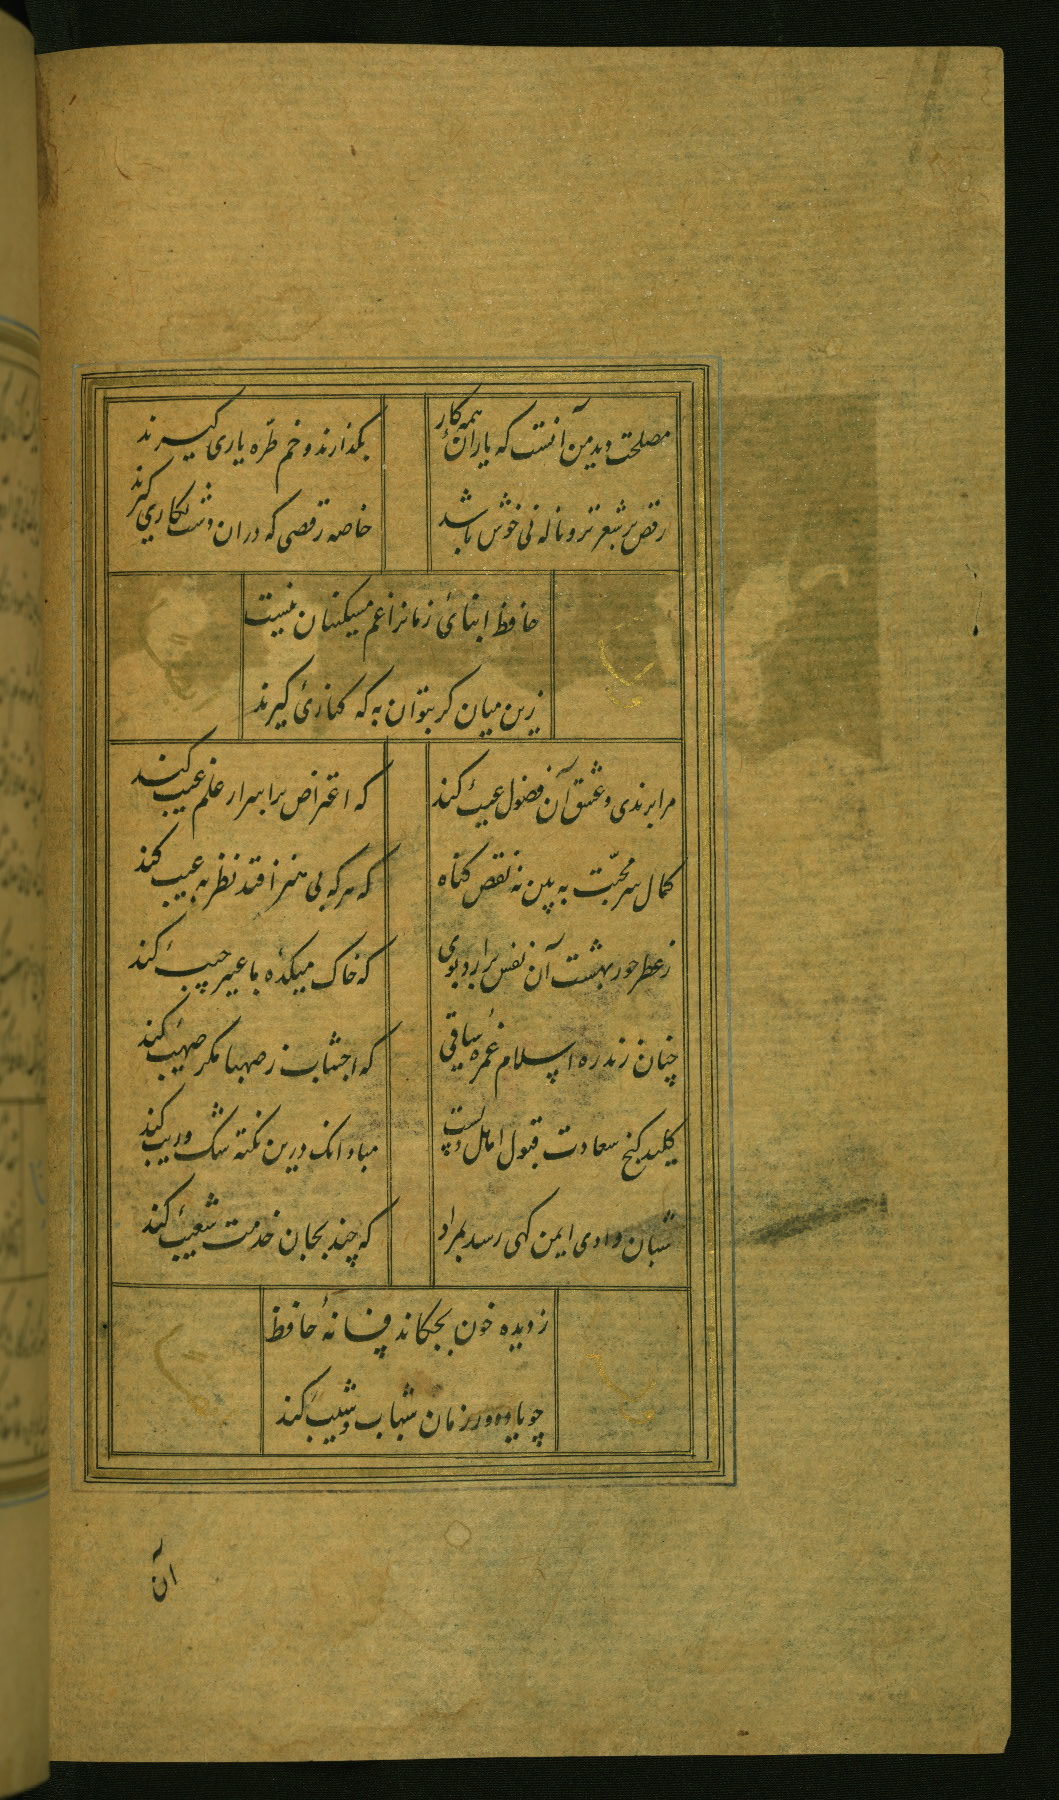 مصلحت دید من آنست که یاران همه کار
بگذارند و خم طرّه یاری گیرند
رقص بر شعر تر و ناله نی خوش باشد
خاصه رقصی که دران دست نگاری گیرند
حافظ ابنای زمانرا غم مسکینان نیست
زین میان گر بتوان به که کناری گیرند
مرا برندی و عشق آن فضول عیب کند
که اعتراض بر اسرار علم غیب کند
کمال سر محبّت به بین نه نقص گناه
که هر که بی هنر افتد نظر به عیب کند
ز عطر حور بهشت آن نفس برآرد بوی
که خاک میکده ما عبیر جیب کند
چنان زند ره اسلام غمزه ساقی
که اجتناب ز صهبا مگر صهیب کند
کلید گنج سعادت قبول اهل دلست
مباد انک درین نکته شک و ریب کند
شبان وادی ایمن گهی رسد بمراد
که چند بجان خدمت شعیب کند
ز دیده خون بچکاند فسانهٔ حافظ
چو یاد دور زمان شباب و شیب کند
آن